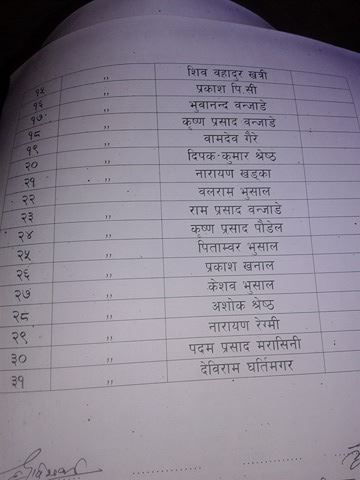 ,, शिव बहादुर खत्री
१५ ,, प्रकाश पि.सी
१६ ,, भुबानन्द वन्जाडे
१७ ,, कृष्ण प्रसाद वन्जाडे
१८ ,, वामदेव गैरे
१९ ,, दिपक कुमार श्रेष्ठ
२० ,, नारायण खड्का
२१ ,, वलराम भुसाल
२२ ,, राम प्रसाद वन्जाडे
२३ ,, कृष्ण प्रसाद पौडेल
२४ ,, पिताम्वर भुसाल
२५ ,, प्रकाश खनाल
२६ ,, केशव भुसाल
२७ ,, अशोक श्रेष्ठ
२८ ,, नारायण रेग्मी
२९ ,, पदम प्रसाद मरासिनी
३० ,, देविराम घर्तिमगर
३१ ,,